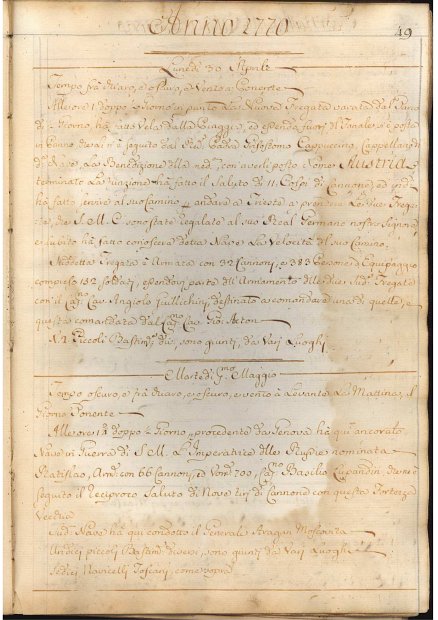 Anno 1770
49
Lunedì 30 Aprile
Tempo frà chiaro, e oscuro, e Vento a Ponente
Allesore 1 doppo Giorno in punto La Nuova Fregata varata dal
di Giorno hà fatto Vela dalla Piaggia, ed essendo fuori il Fanale, si è posto
in Banno dove è seguito dal Padre Grisostomo Cappuccino, Cappellano
di Nave, La Benedizione della med.ª con averli posto Nome Austria
terminata La funzione hà fatto il Saluto di 11 Colpi di Cannone, ed indi
hà fatto il suo Camino andare a Trieste a prendere Le due Fregate
che S. M. C. sono state regalate al suo Real Germano nostro Signore
e subito hà fatto conoscere detta Nave La Velocità del suo Camino
Suddetta Fregata è Armata con 32 Cannoni, e 383 Persone d'Equipaggio
compreso 132 Soldati, essendovi parte dell'Armamento delle due Sud.e Fregate
con il Cap.no Cav. Angiolo Fullichini, destinato a comandare una di quelle, e
questa comandata dal Cap.no Cav. Gio. Acton
N. 2 Piccoli Bastim.ti div. sono giunti, da Varj Luoghi
Martedì P.mo Maggio
Tempo oscuro, e frà chiaro, e oscuro, e vento a Levante La Mattina, il
Giorno Ponente
Allesore 1 doppo Giorno procedente da Genova hà qui ancorato
Nave in Guerra di S. M. L'Imperatrice delle Russie nominata
Ratislao, Arm. con 66 Cannoni, ed Uom. 700, Basilio Lupandin dove è
seguito il Reciproco Saluto di Nove tiri di Cannone con questa Fortezza
Vecchia
Sud.ª Nave hà qui condotto il Generale Moscovita
Andici piccoli Bastim.ti diversi, sono giunti da Varj Luoghi
Sedici Navicelli Toscani, come sopra